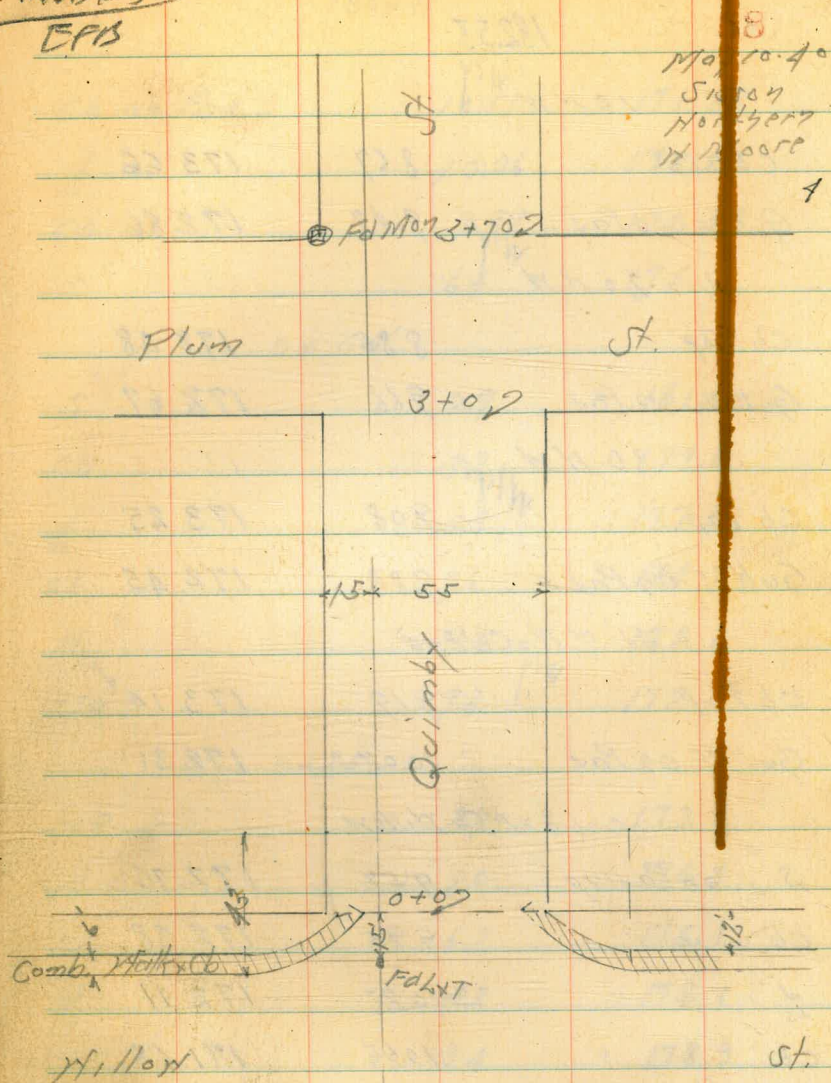 EPB
8
May 10-40
Sisson
Northern
W Moore
St
Fd Mon 3+70
Plum St.
3+0
15 55
Quimby
13
0+0
6
15
12
Comb. Walk & Cb
Fd L&T
Willow St.